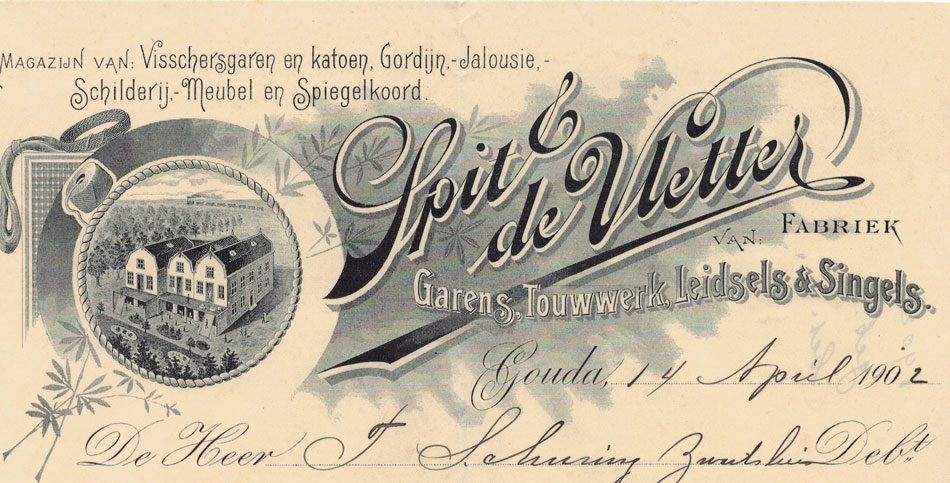 MAGAZIJN VAN: VISSCHERSGAREN EN KATOEN, GORDIJN,-JALOUSIE,-
SCHILDERIJ,-MEUBEL EN SPIEGELKOORD.
Spit &
de Vletter
FABRIEK
VAN:
Garens, Touwwerk, Leidsels & Singels.
Gouda, 14 April 1902
De Heer F Schuring Debt